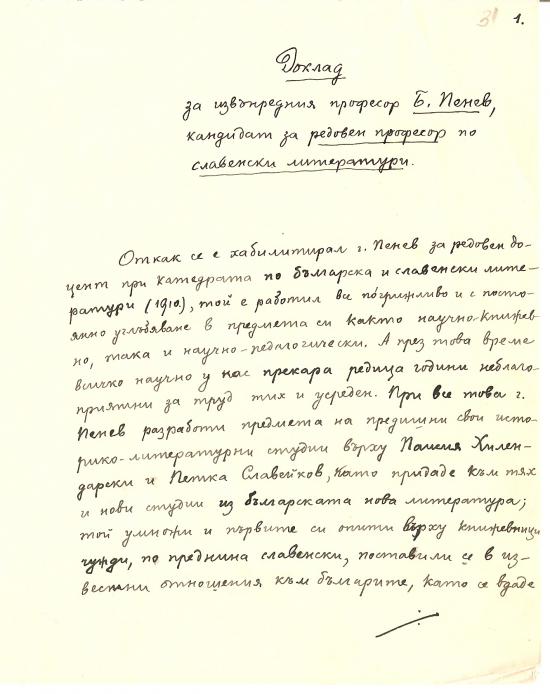 31 1.
Доклад
за извънредния професор Б. Пенев,
кандидат за редовен професор по
славенски литератури.
Откак се е хабилитирал г. Пенев за редовен до-
цент при катедрата по българска и славенски лите-
ратури (1910), той е работил все погрижливо и с посто-
янно углъбяване в предмета си както научно-книжев-
но, така и научно-педагогически. А през това време
всичко научно у нас прекара редица години неблаго-
приятни за труд тих и усреден. При все това г.
Пенев разработи предмета на предишни свои исто-
рико-литературни студии върху Паисия Хилен-
дарски и Петка Славейков, като придаде към тях
и нови студии из българската нова литература;
той умножи и първите си опити върху книжевници
чужди, по преднина славенски, поставили се в из-
вестни отношения към българите, като се вдаде